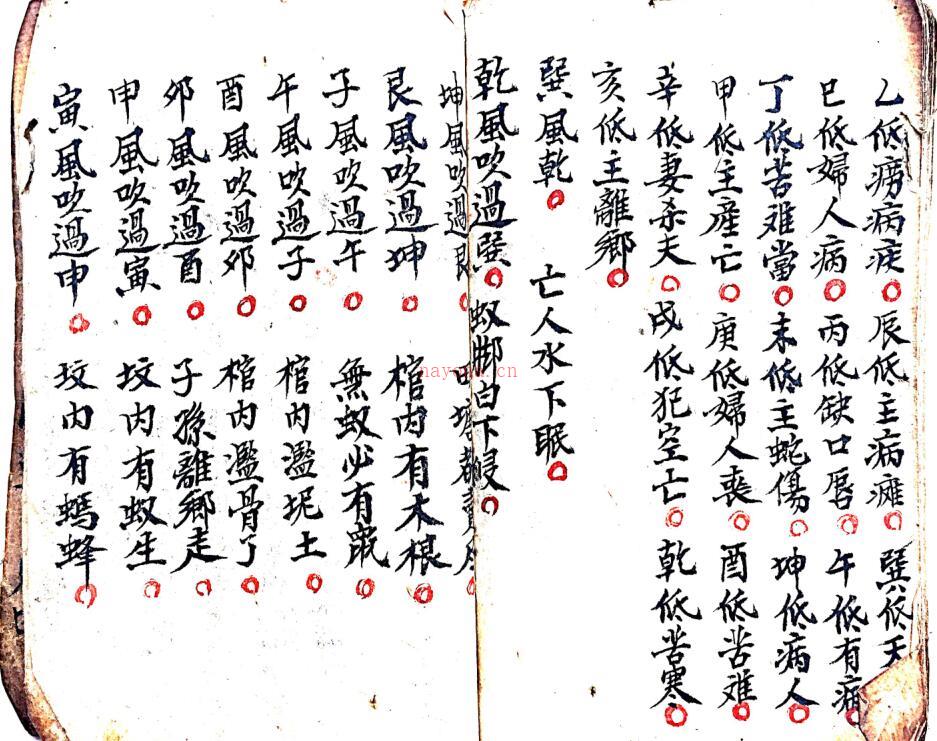 乙低癆病疾○辰低主病癱○巽低天
巳低婦人病○丙低缺口唇○午低有
丁低苦难當○未低主蛇傷○坤低病人○
甲低主産亡○庚低婦人丧○酉低苦难○
辛低妻杀夫○戌低犯空亡○乾低苦寒○
亥低主離鄉○
巽風乾○亡人水下眠○
乾風吹過巽○蚁脚白下侵○
坤風吹過艮○
艮風吹過坤○棺内有木根○
子風吹過午○無蚁必有鼠○
午風吹過子○棺内濫坭土○
酉風吹過卯○棺内濫骨了○
卯風吹過酉○子孫離鄉走○
申風吹過寅○坟内有蚁生○
寅風吹過申○坟内有螞蜂○
hayouka.cn